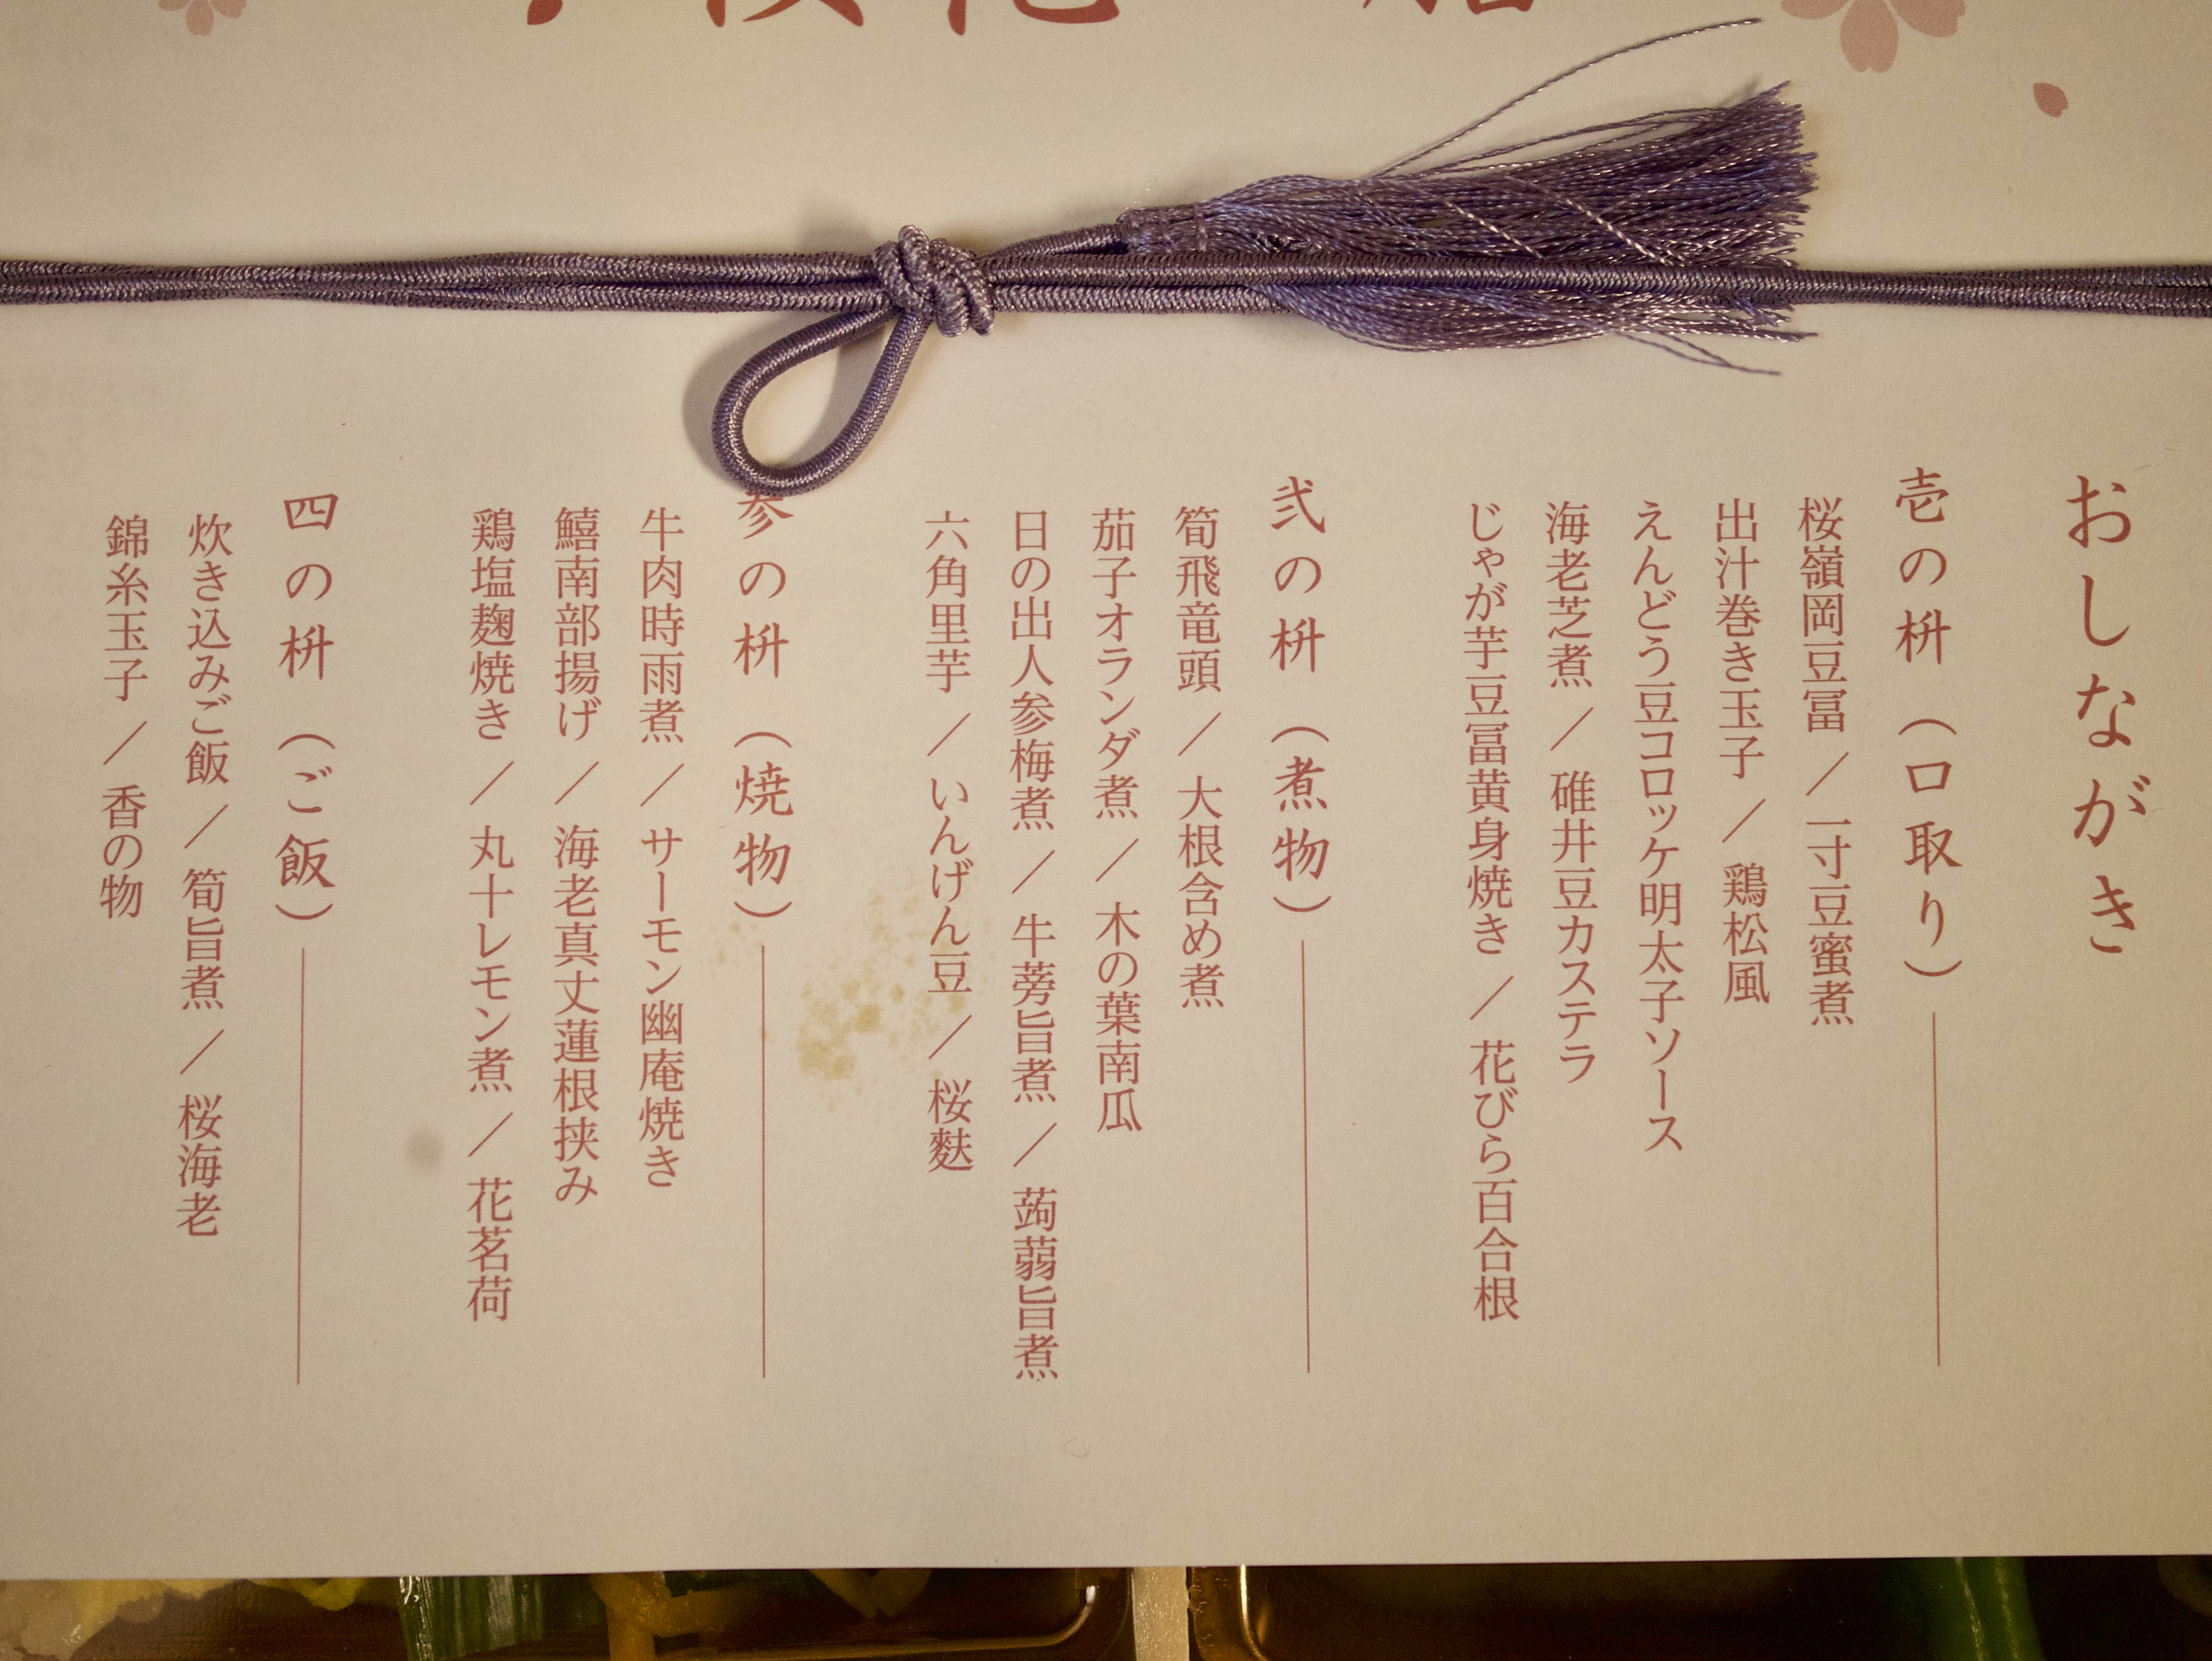 おしながき
壱の枡（口取り）
桜嶺岡豆冨 ／ 一寸豆蜜煮
出汁巻き玉子 ／ 鶏松風
えんどう豆コロッケ明太子ソース
海老芝煮 ／ 碓井豆カステラ
じゃが芋豆冨黄身焼き ／ 花びら百合根
弐の枡（煮物）
筍飛竜頭 ／ 大根含め煮
茄子オランダ煮 ／ 木の葉南瓜
日の出人参梅煮 ／ 牛蒡旨煮 ／ 蒟蒻旨煮
六角里芋 ／ いんげん豆 ／ 桜麩
参の枡（焼物）
牛肉時雨煮 ／ サーモン幽庵焼き
鱚南部揚げ ／ 海老真丈蓮根挟み
鶏塩麹焼き ／ 丸十レモン煮 ／ 花茗荷
四の枡（ご飯）
炊き込みご飯 ／ 筍旨煮 ／ 桜海老
錦糸玉子 ／ 香の物